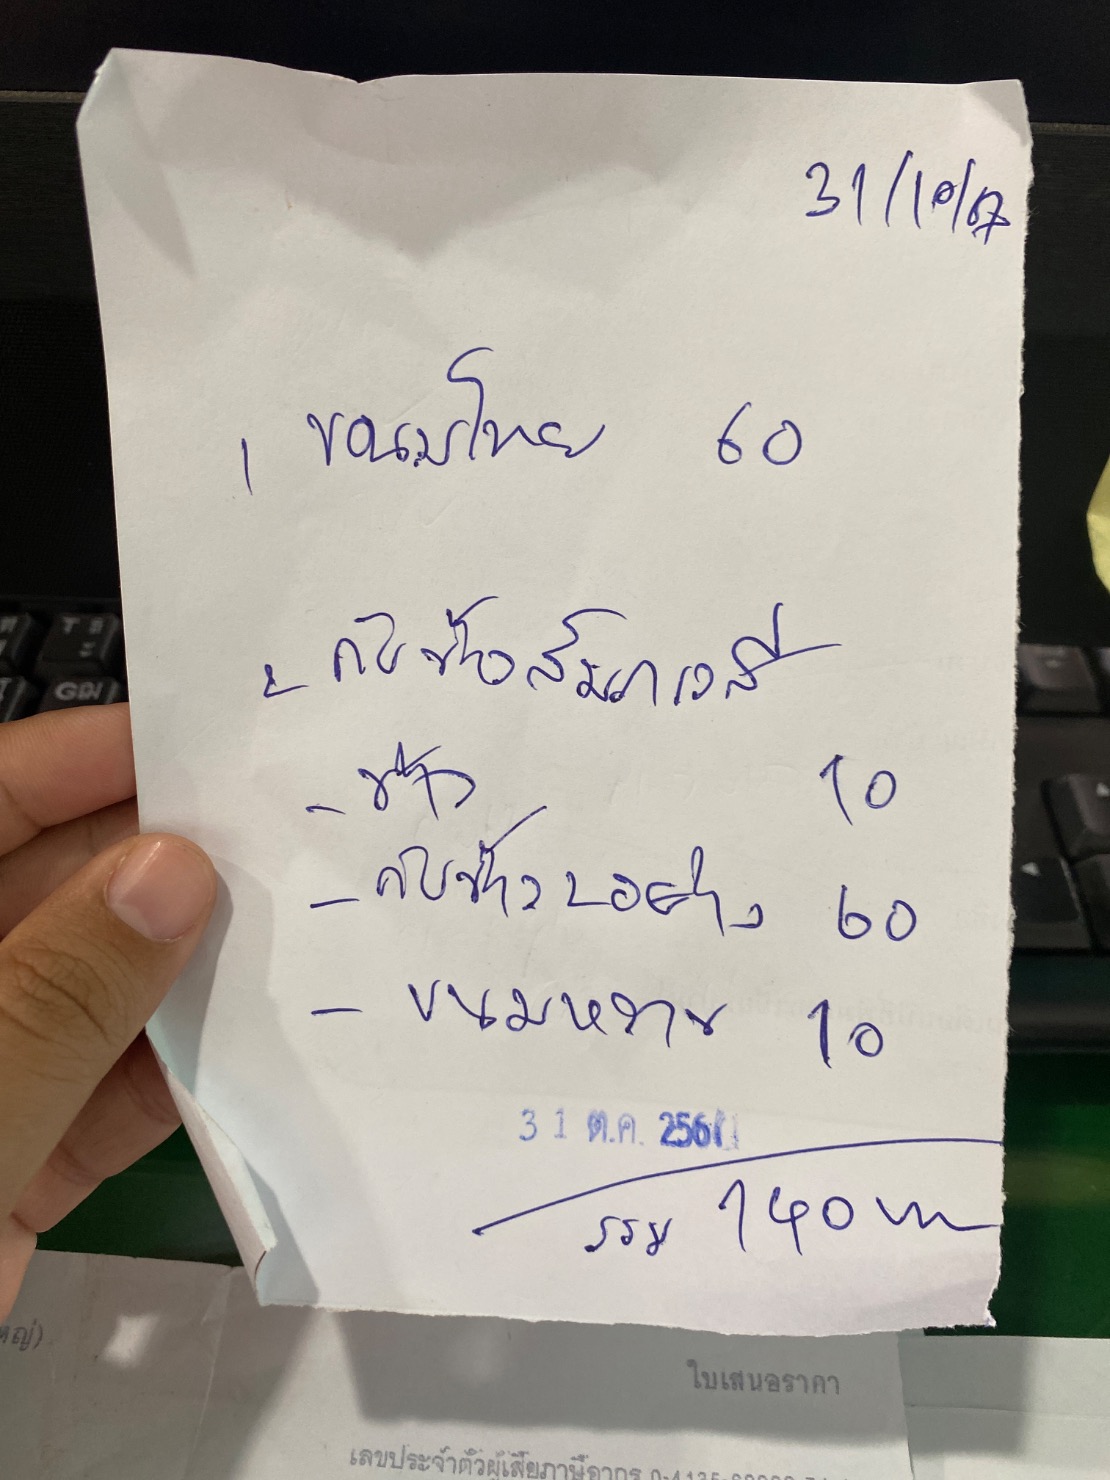 31/10/67
1 ขนมไทย 60
2 กับข้าวสัมภเวสี
- ข้าว 10
- กับข้าว 2 อย่าง 60
- ขนมหวาน 10
31 ต.ค. 256
รวม 140 บาท
หญ่)
ใบเสนอราคา
เลขประจำตัวผู้เสียภาษีอากร